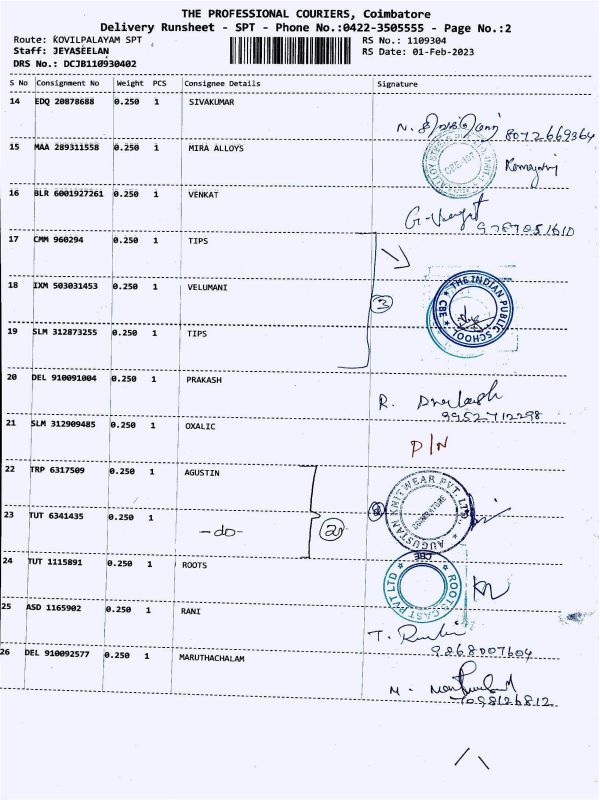 THE PROFESSIONAL COURIERS, Coimbatore
Delivery Runsheet - SPT - Phone No.:0422-3505555 - Page No.:2
Route: KOVILPALAYAM SPT RS No.: 1109304
Staff: JEYASEELAN RS Date: 01-Feb-2023
DRS No.: DCJB110930402
S No Consignment No Weight PCS Consignee Details Signature
14 EDQ 20878688 0.250 1 SIVAKUMAR
N. 8072669364
15 MAA 289311558 0.250 1 MIRA ALLOYS
16 BLR 6001927261 0.250 1 VENKAT
9787051610
17 CMM 960294 0.250 1 TIPS
18 IXM 503031453 0.250 1 VELUMANI
3 THE INDIAN PUBLIC SCHOOL CBE
19 SLM 312873255 0.250 1 TIPS
20 DEL 910091004 0.250 1 PRAKASH
R.
9952712298
21 SLM 312909485 0.250 1 OXALIC
P/N
22 TRP 6317509 0.250 1 AGUSTIN
AUGUSTAN KNITWEAR PVT. LTD. COIMBATORE
23 TUT 6341435 0.250 1 -do- 2
24 TUT 1115891 0.250 1 ROOTS
ROOTS CAST PVT LTD CBE
25 ASD 1165902 0.250 1 RANI
T.
9868007604
26 DEL 910092577 0.250 1 MARUTHACHALAM
M.
7098126812